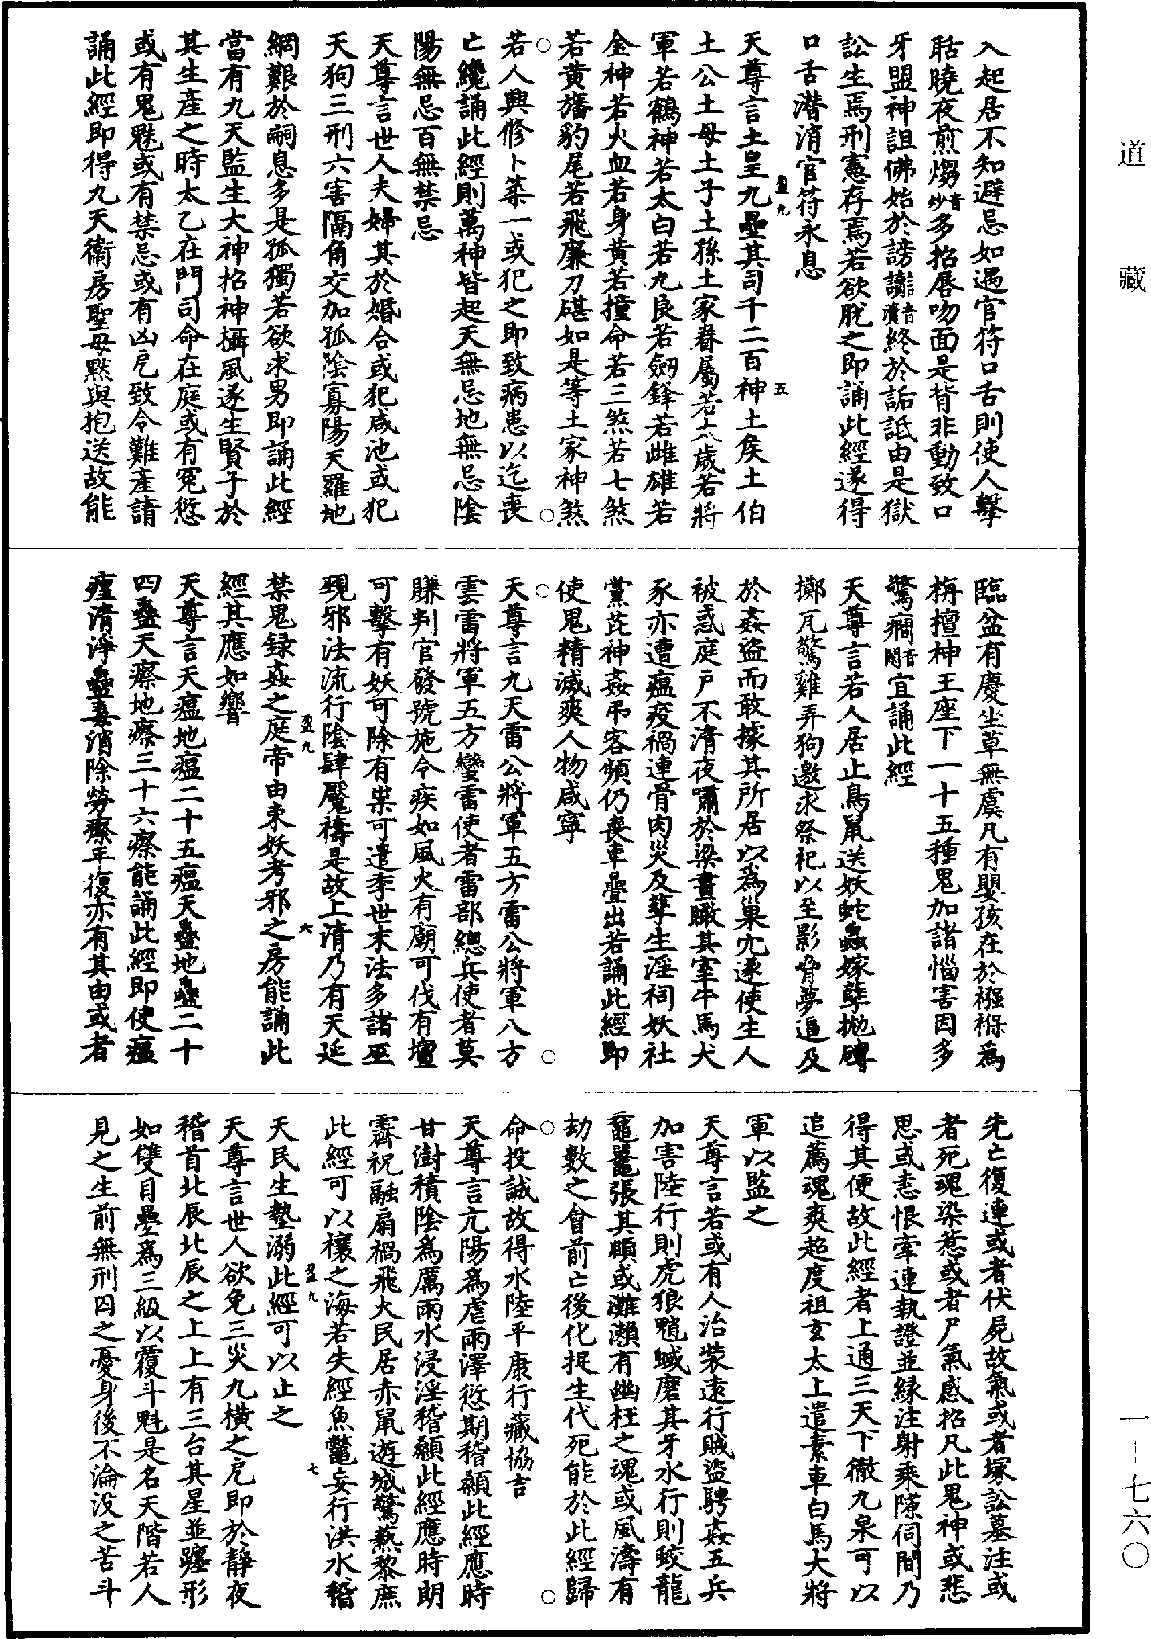 道藏
入起居不知避忌如遇官符口舌則使人擊
聒曉夜煎熬音炒多招唇吻面是背非動致口
牙盟神詛佛始於謗讟音瀆終於詬詆由是獄
訟生焉刑憲存焉若欲脫之即誦此經遂得
口舌潛消官符永息
盈九
天尊言土皇九壘其司千二百神土侯土伯
五
土公土母土子土孫土家眷屬若太歲若將
軍若鶴神若太白若九良若劍鋒若雌雄若
金神若火血若身黃若撞命若三煞若七煞
若黃旛豹尾若飛廉刀碪如是等土家神煞
若人興修卜築一或犯之即致病患以迄喪
亡纔誦此經則萬神皆起天無忌地無忌陰
陽無忌百無禁忌
天尊言世人夫婦其於婚合或犯咸池或犯
天狗三刑六害隔角交加孤陰寡陽天羅地
網艱於嗣息多是孤獨若欲求男即誦此經
當有九天監生大神招神攝風遂生賢子於
其生產之時太乙在門司命在庭或有冤愆
或有鬼魅或有禁忌或有凶危致令難產請
誦此經即得九天衛房聖母默與抱送故能
臨盆有慶坐草無虞凡有嬰孩在於襁褓為
栴檀神王座下一十五種鬼加諸惱害因多
驚癇音閑宜誦此經
天尊言若人居止鳥鼠送妖蛇蟲嫁孽拋磚
擲瓦驚雞弄狗邀求祭祀以至影脅夢逼及
於姦盜而敢據其所居以為巢穴遂使生人
被惑庭戶不清夜嘯於梁晝瞰其室牛馬犬
豕亦遭瘟疫禍連骨肉災及孳生淫祠妖社
黨芘神姦弔客頻仍喪車疊出若誦此經即
使鬼精滅爽人物咸寧
天尊言九天雷公將軍五方雷公將軍八方
雲雷將軍五方蠻雷使者雷部總兵使者莫
賺判官發號施令疾如風火有廟可伐有壇
可擊有妖可除有祟可遣季世末法多諸巫
覡邪法流行陰肆魘禱是故上清乃有天延
六
禁鬼録姦之庭帝由束妖考邪之房能誦此
盈九
經其應如響
天尊言天瘟地瘟二十五瘟天蠱地蠱二十
四蠱天瘵地瘵三十六瘵能誦此經即使瘟
㾮清淨蠱毒消除勞瘵平復亦有其由或者
先亡復連或者伏屍故氣或者塚訟墓注或
者死魂染惹或者尸氣感招凡此鬼神或悲
思或恚恨牽連執證並緣注射乘隙伺間乃
得其便故此經者上通三天下徹九泉可以
追薦魂爽超度祖玄太上遣素車白馬大將
軍以監之
天尊言若或有人治裝遠行賊盜騁姦五兵
加害陸行則虎狼魑蜮磨其牙水行則蛟龍
黿鼉張其頤或灘瀨有幽枉之魂或風濤有
劫數之會前亡後化捉生代死能於此經歸
命投誠故得水陸平康行藏協吉
天尊言亢陽為虐雨澤愆期稽顙此經應時
甘澍積陰為厲雨水浸淫稽顙此經應時朗
霽祝融扇禍飛火民居赤鼠遊城驚爇黎庶
此經可以禳之海若失經魚鼈妄行洪水稽
七
天民生墊溺此經可以止之
盈九
天尊言世人欲免三災九橫之危即於靜夜
稽首北辰北辰之上上有三台其星並躔形
如雙目疊為三級以覆斗魁是名天階若人
見之生前無刑囚之憂身後不淪没之苦斗
一-七六〇